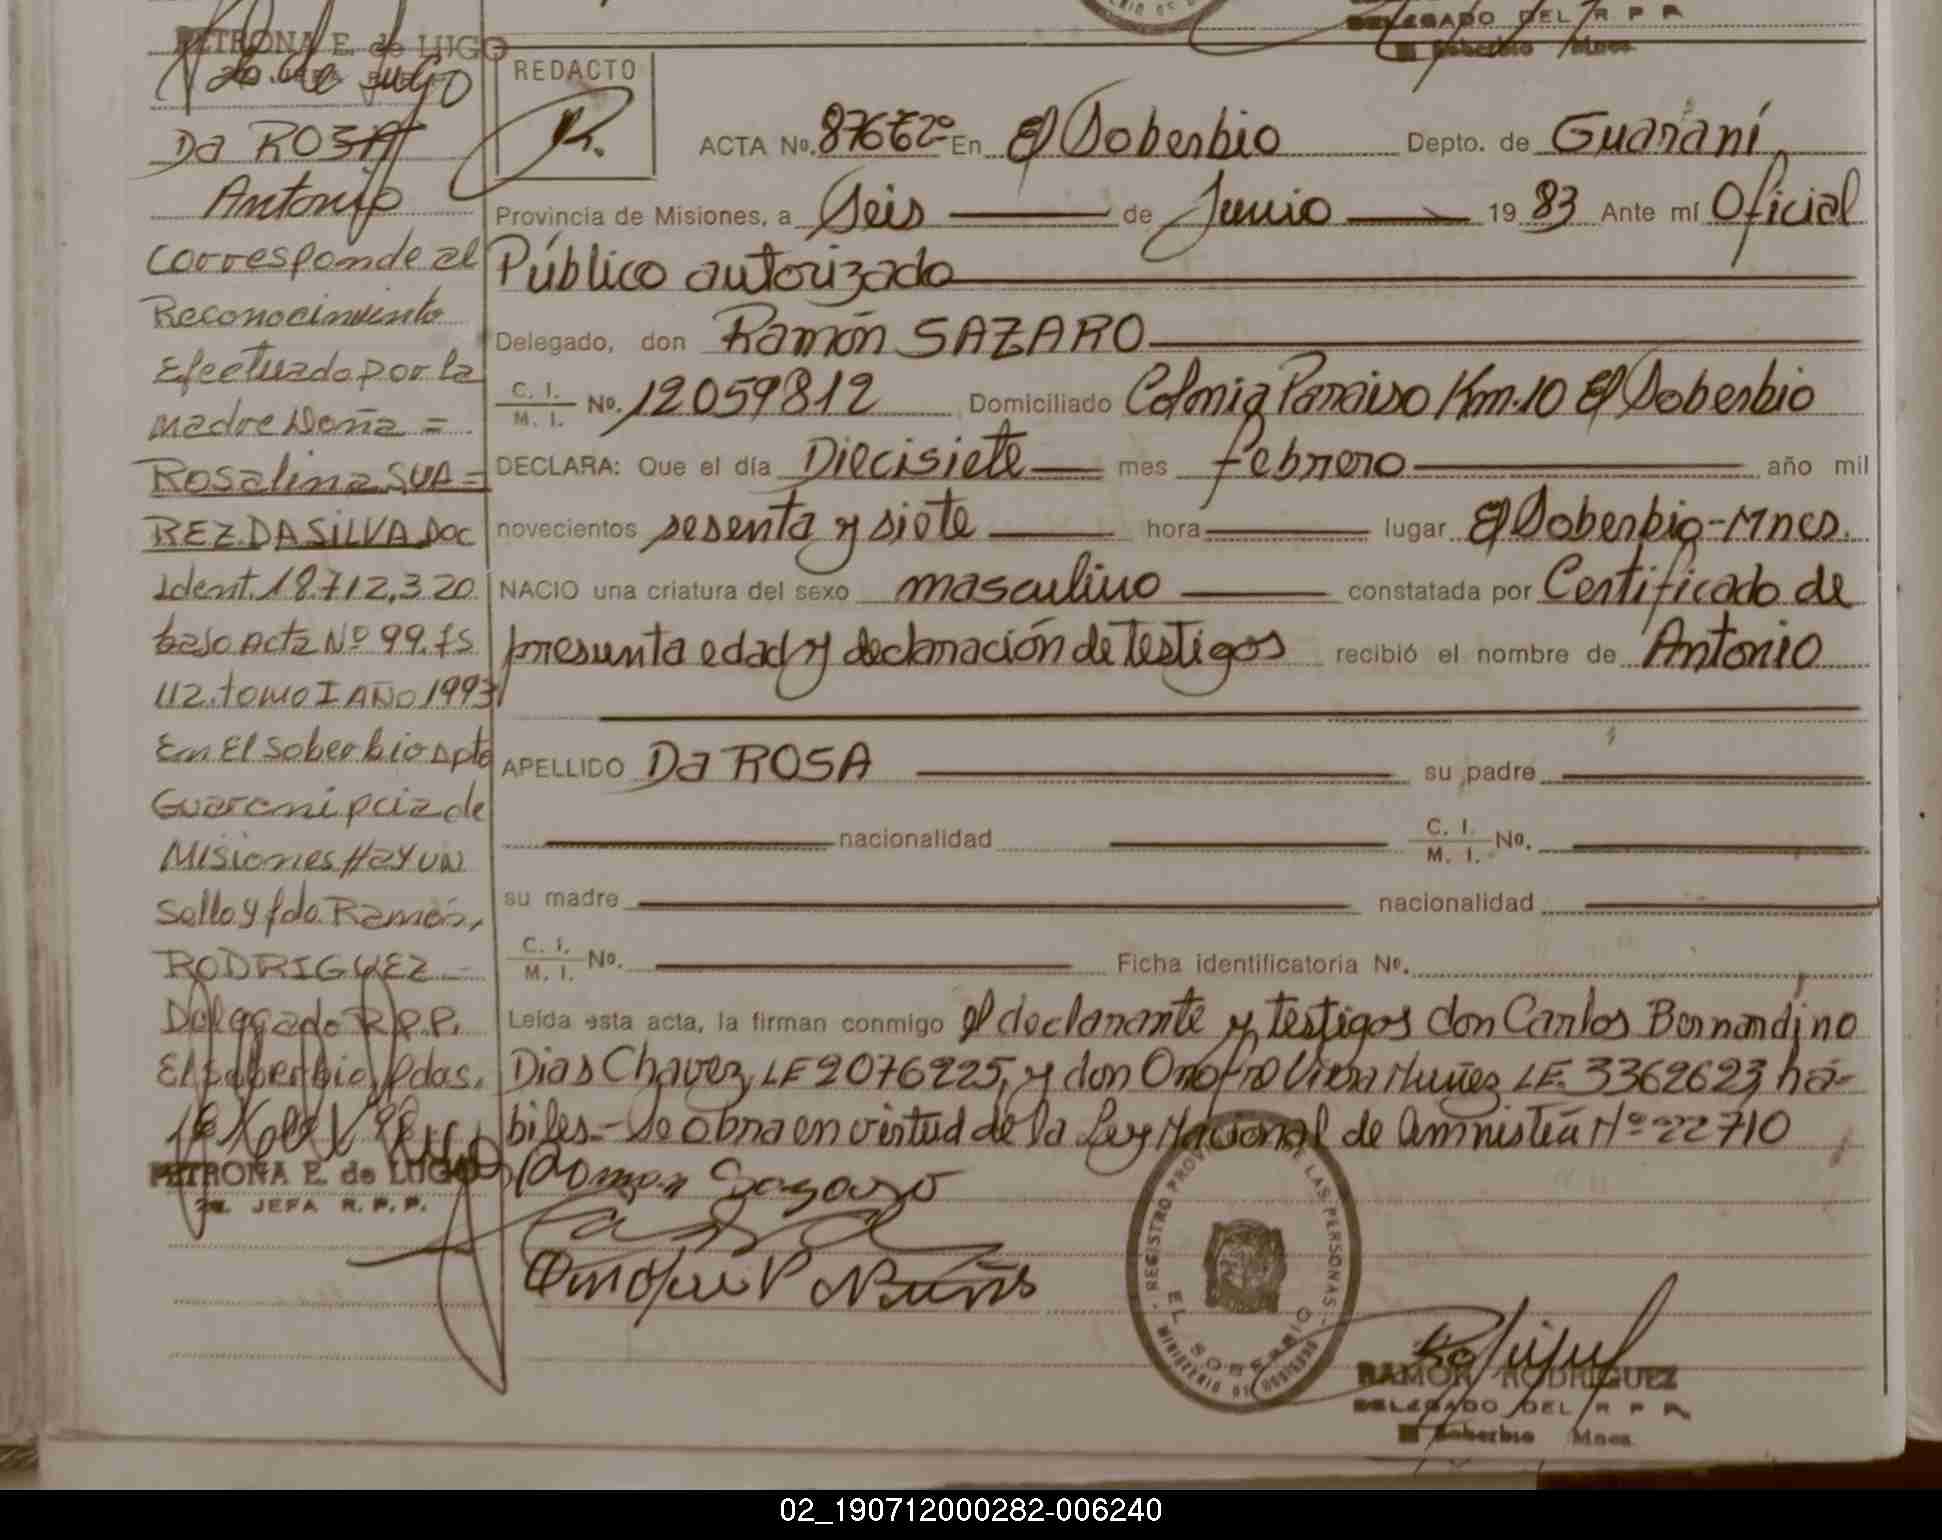 DELEGADO DEL R P P
El Soberbio Mnes.
PETRONA E. de LUGO
REDACTO
Da ROSA
Antonio
Corresponde al
Reconocimiento
Efectuado por la
madre Doña =
Rosalina SUA=
REZ DA SILVA Doc
Ident. 18.712.320
bajo Acta Nº 99. fs
112. tomo I AÑO 1993
En El Soberbio Dpto
Guarani pcia de
Misiones Hay un
Sello y fdo. Ramón,
RODRIGUEZ -
Delegado R.P.P.
El Soberbio, Pdas,
PETRONA E. de LUGO
JEFA R. P. P.
ACTA No. En El Soberbio Depto. de Guaraní
Provincia de Misiones, a Seis de Junio 1983 Ante mí Oficial
Público autorizado
Delegado, don Ramón SAZARO
C. I. / M. I. No. 12059812 Domiciliado Colonia Paraiso Km.10 El Soberbio
DECLARA: Que el día Diecisiete mes febrero año mil
novecientos sesenta y siete hora lugar El Soberbio-Mnes.
NACIO una criatura del sexo masculino constatada por Certificado de
presunta edad y declaración de testigos recibió el nombre de Antonio
APELLIDO Da ROSA su padre
nacionalidad C. I. / M. I. No.
su madre nacionalidad
C. I. / M. I. No. Ficha identificatoria No.
Leída esta acta, la firman conmigo el declarante y testigos don Carlos Bernardino
Dias Chavez LE 2076225, y don Onofre Viera Nuñez LE. 3362623, há-
biles.- Se obra en virtud de la Ley Nacional de Amnistía Nº 22710
Roman Sazaro
REGISTRO PROVINCIAL DE LAS PERSONAS
EL SOBERBIO
MINISTERIO DE GOBIERNO
RAMON RODRIGUEZ
DELEGADO DEL R P P
El Soberbio Mnes.
02_190712000282-006240